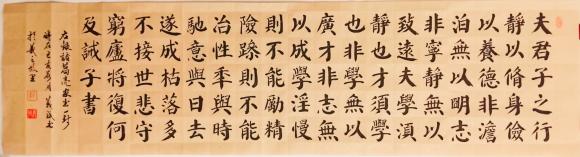 夫君子之行
静以脩身儉
以養德非澹
泊無以明志
非寧静無以
致遠夫學須
静也才須學
也非學無以
廣才非志無
以成學淫慢
則不能勵精
險躁則不能
治性年與時
馳意與日去
遂成枯落多
不接世悲守
窮廬將復何
及誡子書
右錄諸葛亮